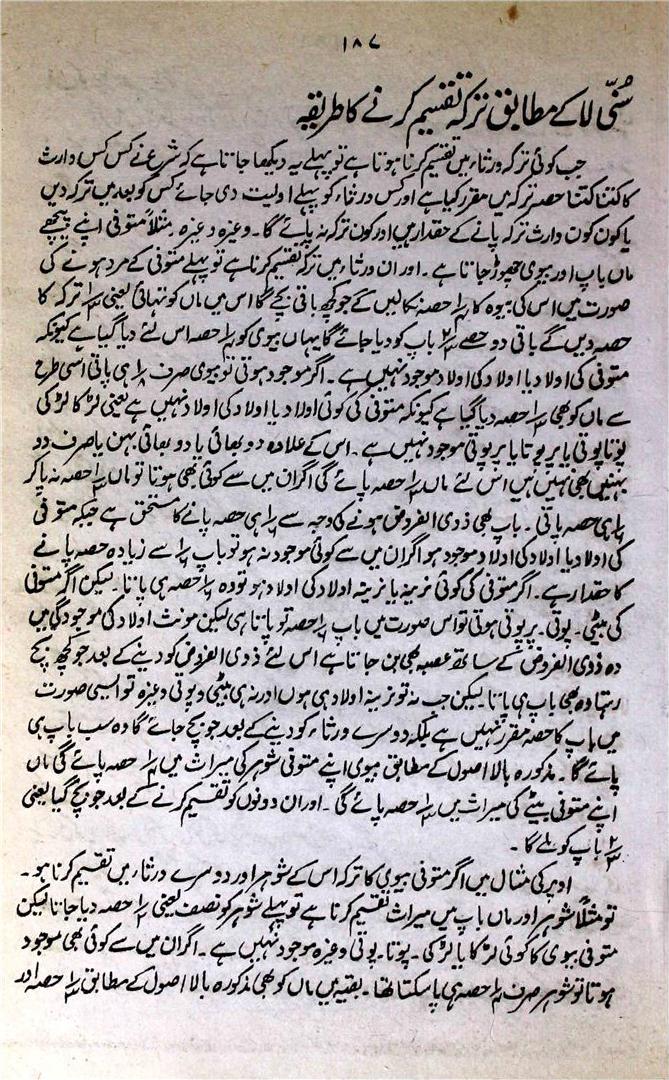 ۱۸۷
سُنّی لا کے مطابق ترکہ تقسیم کرنے کا طریقہ
جب کوئی ترکہ ورثاء میں تقسیم کرنا ہوتا ہے تو پہلے یہ دیکھا جاتا ہے کہ شرع نے کس کس وارث
کا کتنا کتنا حصہ ترکہ میں مقرر کیا ہے اور کس ورثاء کو پہلے اولیت دی جائے کس کو بعد میں ترکہ دیں
یا کون کون وارث ترکہ پانے کے حقدار ہیں اور کون ترکہ نہ پائے گا۔ وغیرہ وغیرہ۔ مثلاً متوفی اپنے پیچھے
ماں باپ اور بیوی چھوڑ جاتا ہے۔ اور ان ورثاء میں ترکہ تقسیم کرنا ہے تو پہلے متوفی کے مرد ہونے کی
صورت میں اس کی بیوہ کا ۱/۴ حصہ نکالیں گے جو کچھ باقی بچے گا اس میں ماں کو تہائی یعنی ۱/۳ ترکہ کا
حصہ دیں گے باقی دو حصے ۲/۳ باپ کو دیا جائے گا یہاں بیوی کو ۱/۴ حصہ اس لئے دیا گیا ہے کیونکہ
متوفی کی اولاد یا اولاد کی اولاد موجود نہیں ہے۔ اگر موجود ہوتی تو بیوی صرف ۱/۸ ہی پاتی اسی طرح
سے ماں کو بھی ۱/۳ حصہ دیا گیا ہے کیونکہ متوفی کی کوئی اولاد یا اولاد کی اولاد نہیں ہے یعنی لڑکا لڑکی
پوتا پوتی یا پرپوتا یا پرپوتی موجود نہیں ہے۔ اس کے علاوہ دو بھائی یا دو بھائی بہن یا صرف دو
بہنیں بھی نہیں ہیں اس لئے ماں ۱/۳ حصہ پائے گی اگر ان میں سے کوئی بھی ہوتا تو ماں ۱/۳ حصہ نہ پاکر
۱/۶ ہی حصہ پاتی۔ باپ بھی ذوی الفروض ہونے کی وجہ سے ۱/۶ ہی حصہ پانے کا مستحق ہے جبکہ متوفی
کی اولاد یا اولاد کی اولاد موجود ہو اگر ان میں سے کوئی موجود نہ ہو تو باپ ۱/۶ سے زیادہ حصہ پانے
کا حقدار ہے۔ اگر متوفی کی کوئی نرینہ یا نرینہ اولاد کی اولاد ہو تو وہ ۱/۶ حصہ ہی پاتا۔ لیکن اگر متوفی
کی بیٹی۔ پوتی۔ پرپوتی ہوتی تو اس صورت میں باپ ۱/۶ حصہ تو پاتا ہی لیکن مونث اولاد کی موجودگی میں
وہ ذوی الفروض کے ساتھ عصبہ بھی بن جاتا ہے اس لئے ذوی الفروض کو دینے کے بعد جو کچھ بچ
رہتا وہ بھی باپ ہی پاتا۔ لیکن جب نہ تو نرینہ اولاد ہی ہوں اور نہ ہی بیٹی و پوتی وغیرہ تو ایسی صورت
میں باپ کا حصہ مقرر نہیں ہے بلکہ دوسرے ورثاء کو دینے کے بعد جو بچ جائے گا وہ سب باپ ہی
پائے گا۔ مذکورہ بالا اصول کے مطابق بیوی اپنے متوفی شوہر کی میراث میں ۱/۴ حصہ پائے گی ماں
اپنے متوفی بیٹے کی میراث میں ۱/۳ حصہ پائے گی۔ اور ان دونوں کو تقسیم کرنے کے بعد جو بچ گیا یعنی
۲/۳ باپ کو ملے گا۔
اوپر کی مثال میں اگر متوفی بیوی کا ترکہ اس کے شوہر اور دوسرے ورثاء میں تقسیم کرنا ہو۔
تو مثلاً شوہر اور ماں باپ میں میراث تقسیم کرنا ہے تو پہلے شوہر کو نصف یعنی ۱/۲ حصہ دیا جاتا لیکن
متوفی بیوی کا کوئی لڑکا یا لڑکی۔ پوتا۔ پوتی وغیرہ موجود نہیں ہے۔ اگر ان میں سے کوئی بھی موجود
ہوتا تو شوہر صرف ۱/۴ حصہ ہی پا سکتا تھا۔ بقیہ میں ماں کو بھی مذکورہ بالا اصول کے مطابق ۱/۳ حصہ اور